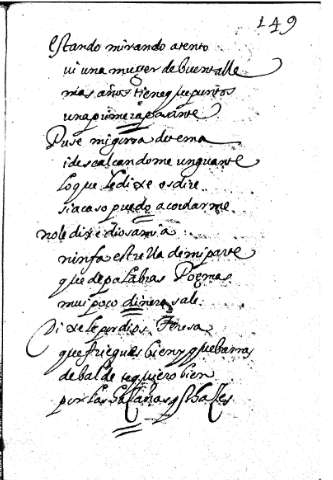 149
estando mirando atento
vi una muger de buen talle
mas años tiene que puntos
una primera pasante
Puse mi gorra
i descalcandome un guante
lo que le dixe os dire
si acaso puedo acordarme
no le dixe diosa mia
ninfa estrella de mi parte
que de palabras Poemas
mui poco dinero sale
Dixele por dios Teresa
que friegues bien y que barras
de balde te quiero bien
por las